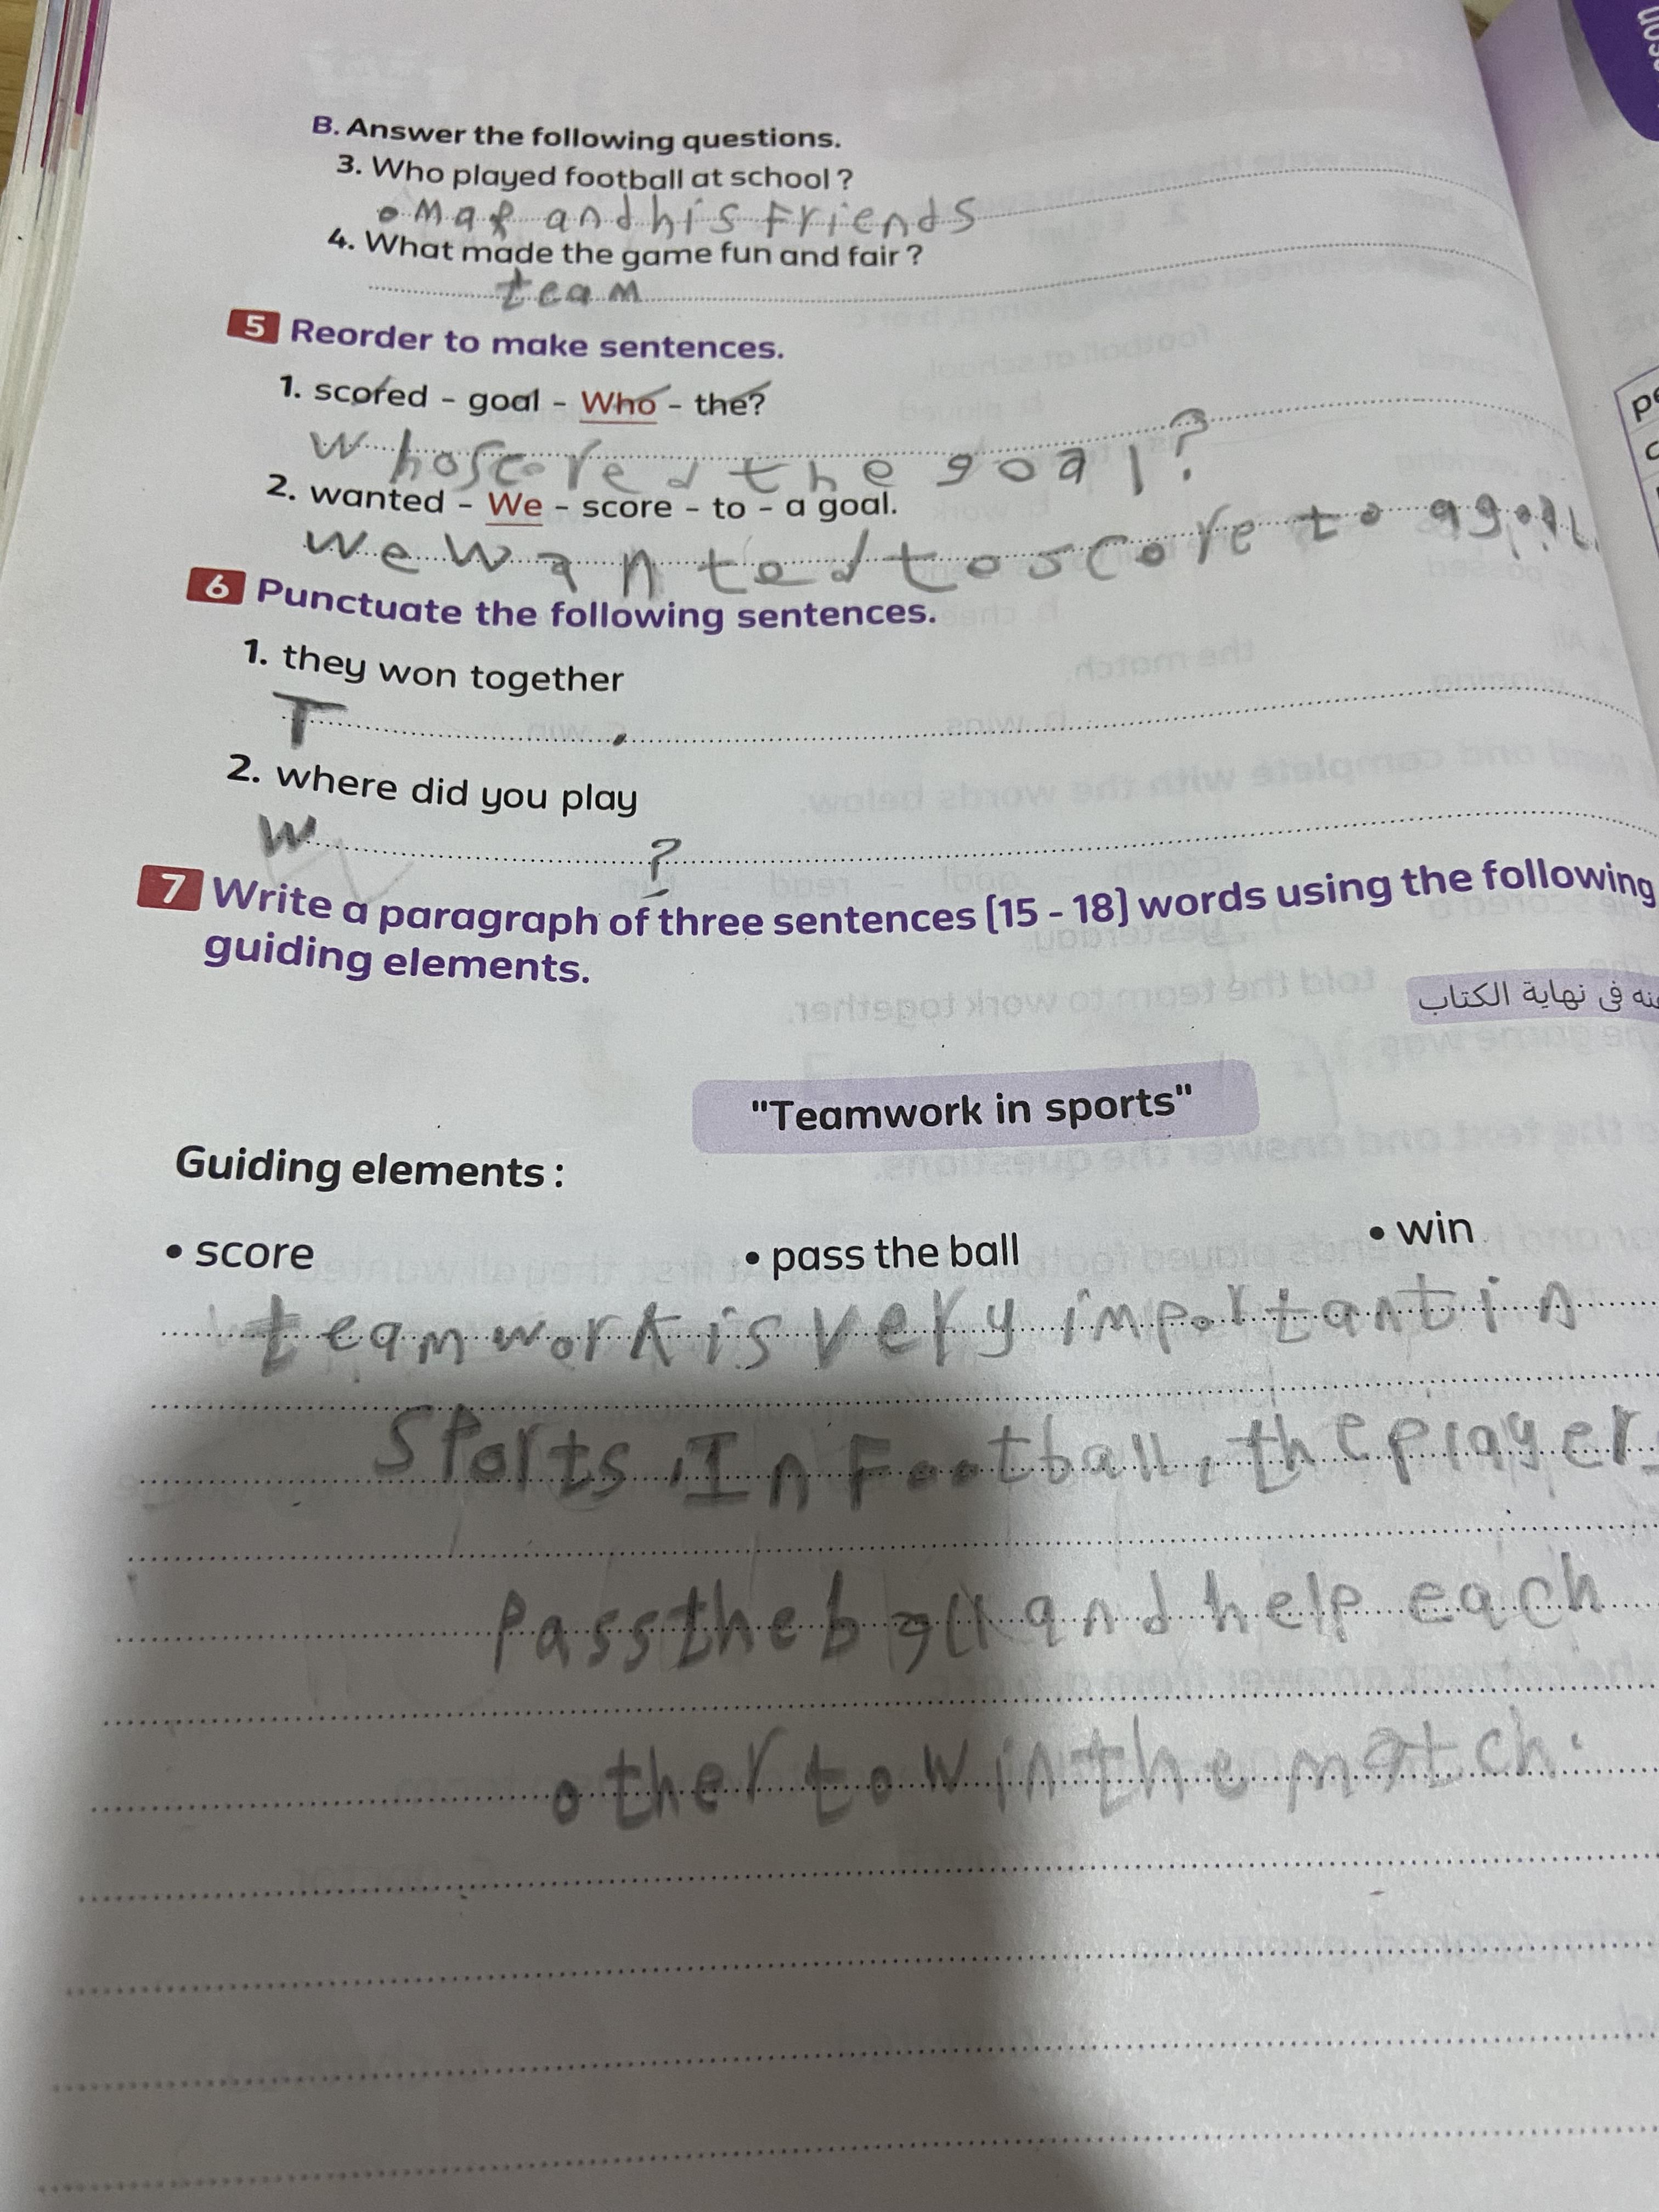 B. Answer the following questions.
3. Who played football at school ?
omar and his friends
4. What made the game fun and fair ?
team
5 Reorder to make sentences.
1. scored - goal - Who - the?
who scored the goal?
2. wanted - We - score - to - a goal.
we wanted to score to a goal.
6 Punctuate the following sentences.
1. they won together
T .
2. where did you play
W ?
7 Write a paragraph of three sentences (15 - 18) words using the following
guiding elements.
فى نهاية الكتاب
"Teamwork in sports"
Guiding elements :
• score • pass the ball • win
teamwork is very important in
sports. In Football, the players
Pass the ball and help each
other to win the match.